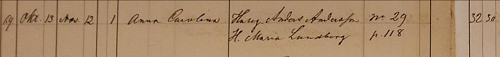 19 Okt. 13 Nov. 12 1 Anna Carolina Anders Andersson No 29 32 30
H. Maria Lundberg p. 118